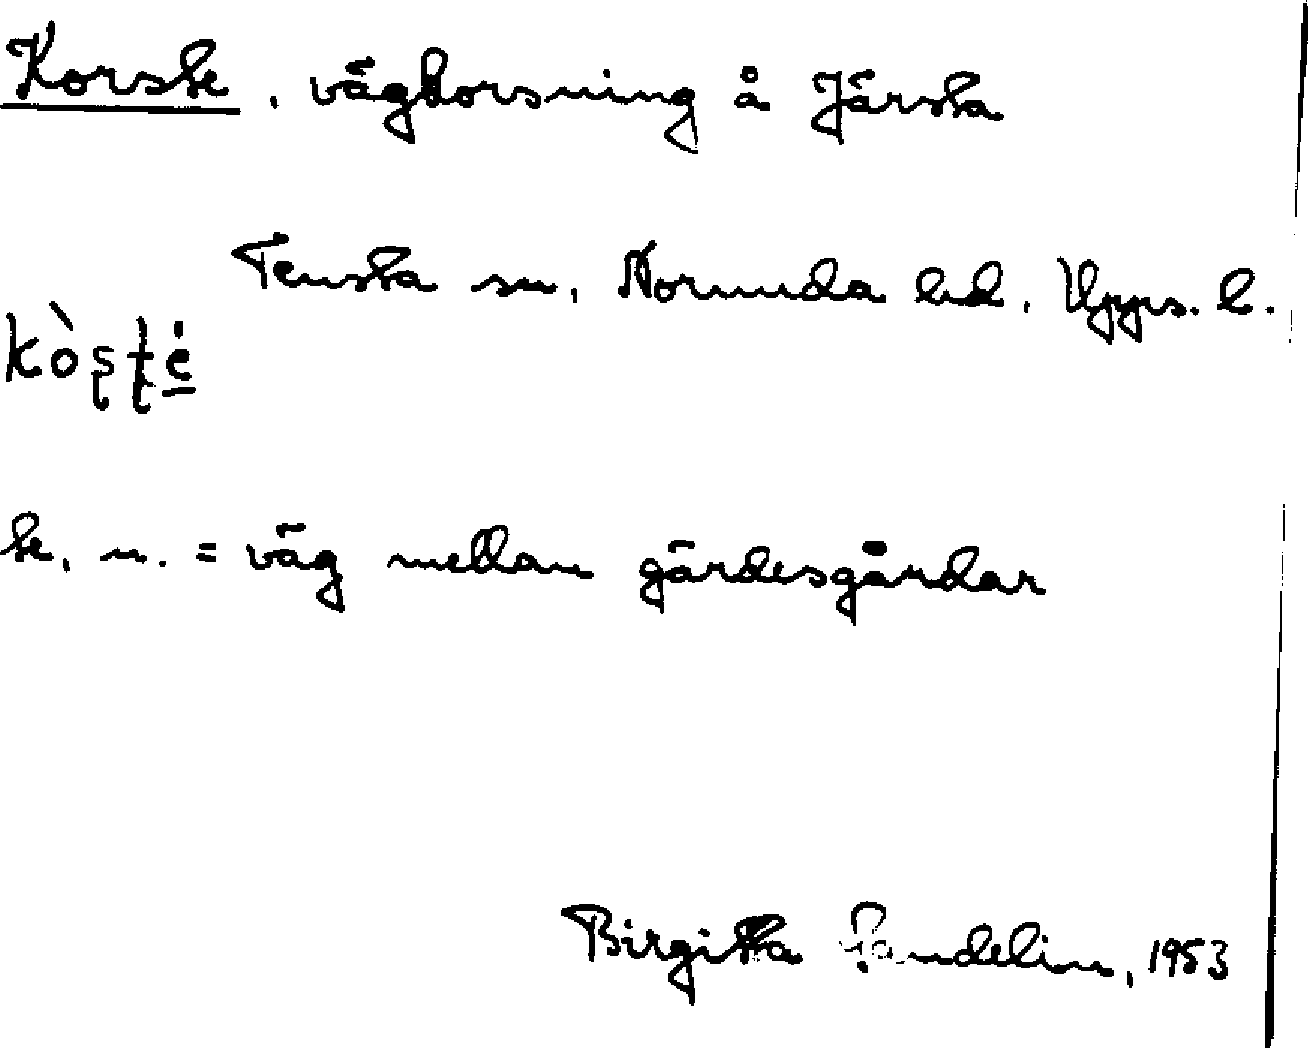 Korste, vägkorsning å Järsta
Tensta sn, Norunda hd, Upps. l.
kò̀ṣṭė
te, n. = väg mellan gärdesgårdar
Birgitta Sandelin, 1953